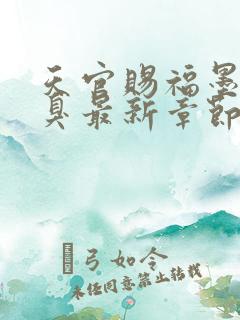 天官赐福墨
具最新章节
弓如令
未经同意禁止转载